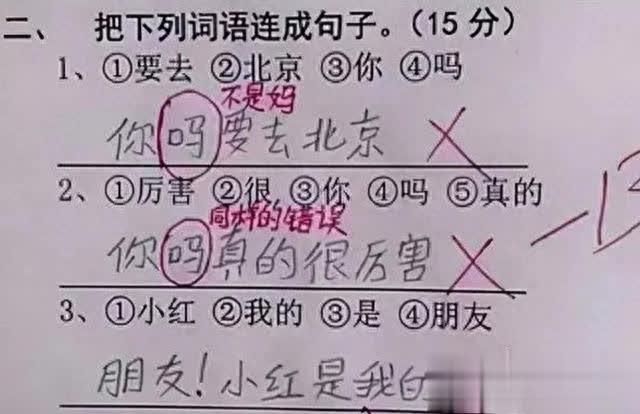 二、 把下列词语连成句子。（15分）
1、①要去 ②北京 ③你 ④吗
不是妈
你吗要去北京
2、①厉害 ②很 ③你 ④吗 ⑤真的
同样的错误
你吗真的很厉害
3、①小红 ②我的 ③是 ④朋友
朋友！小红是我的